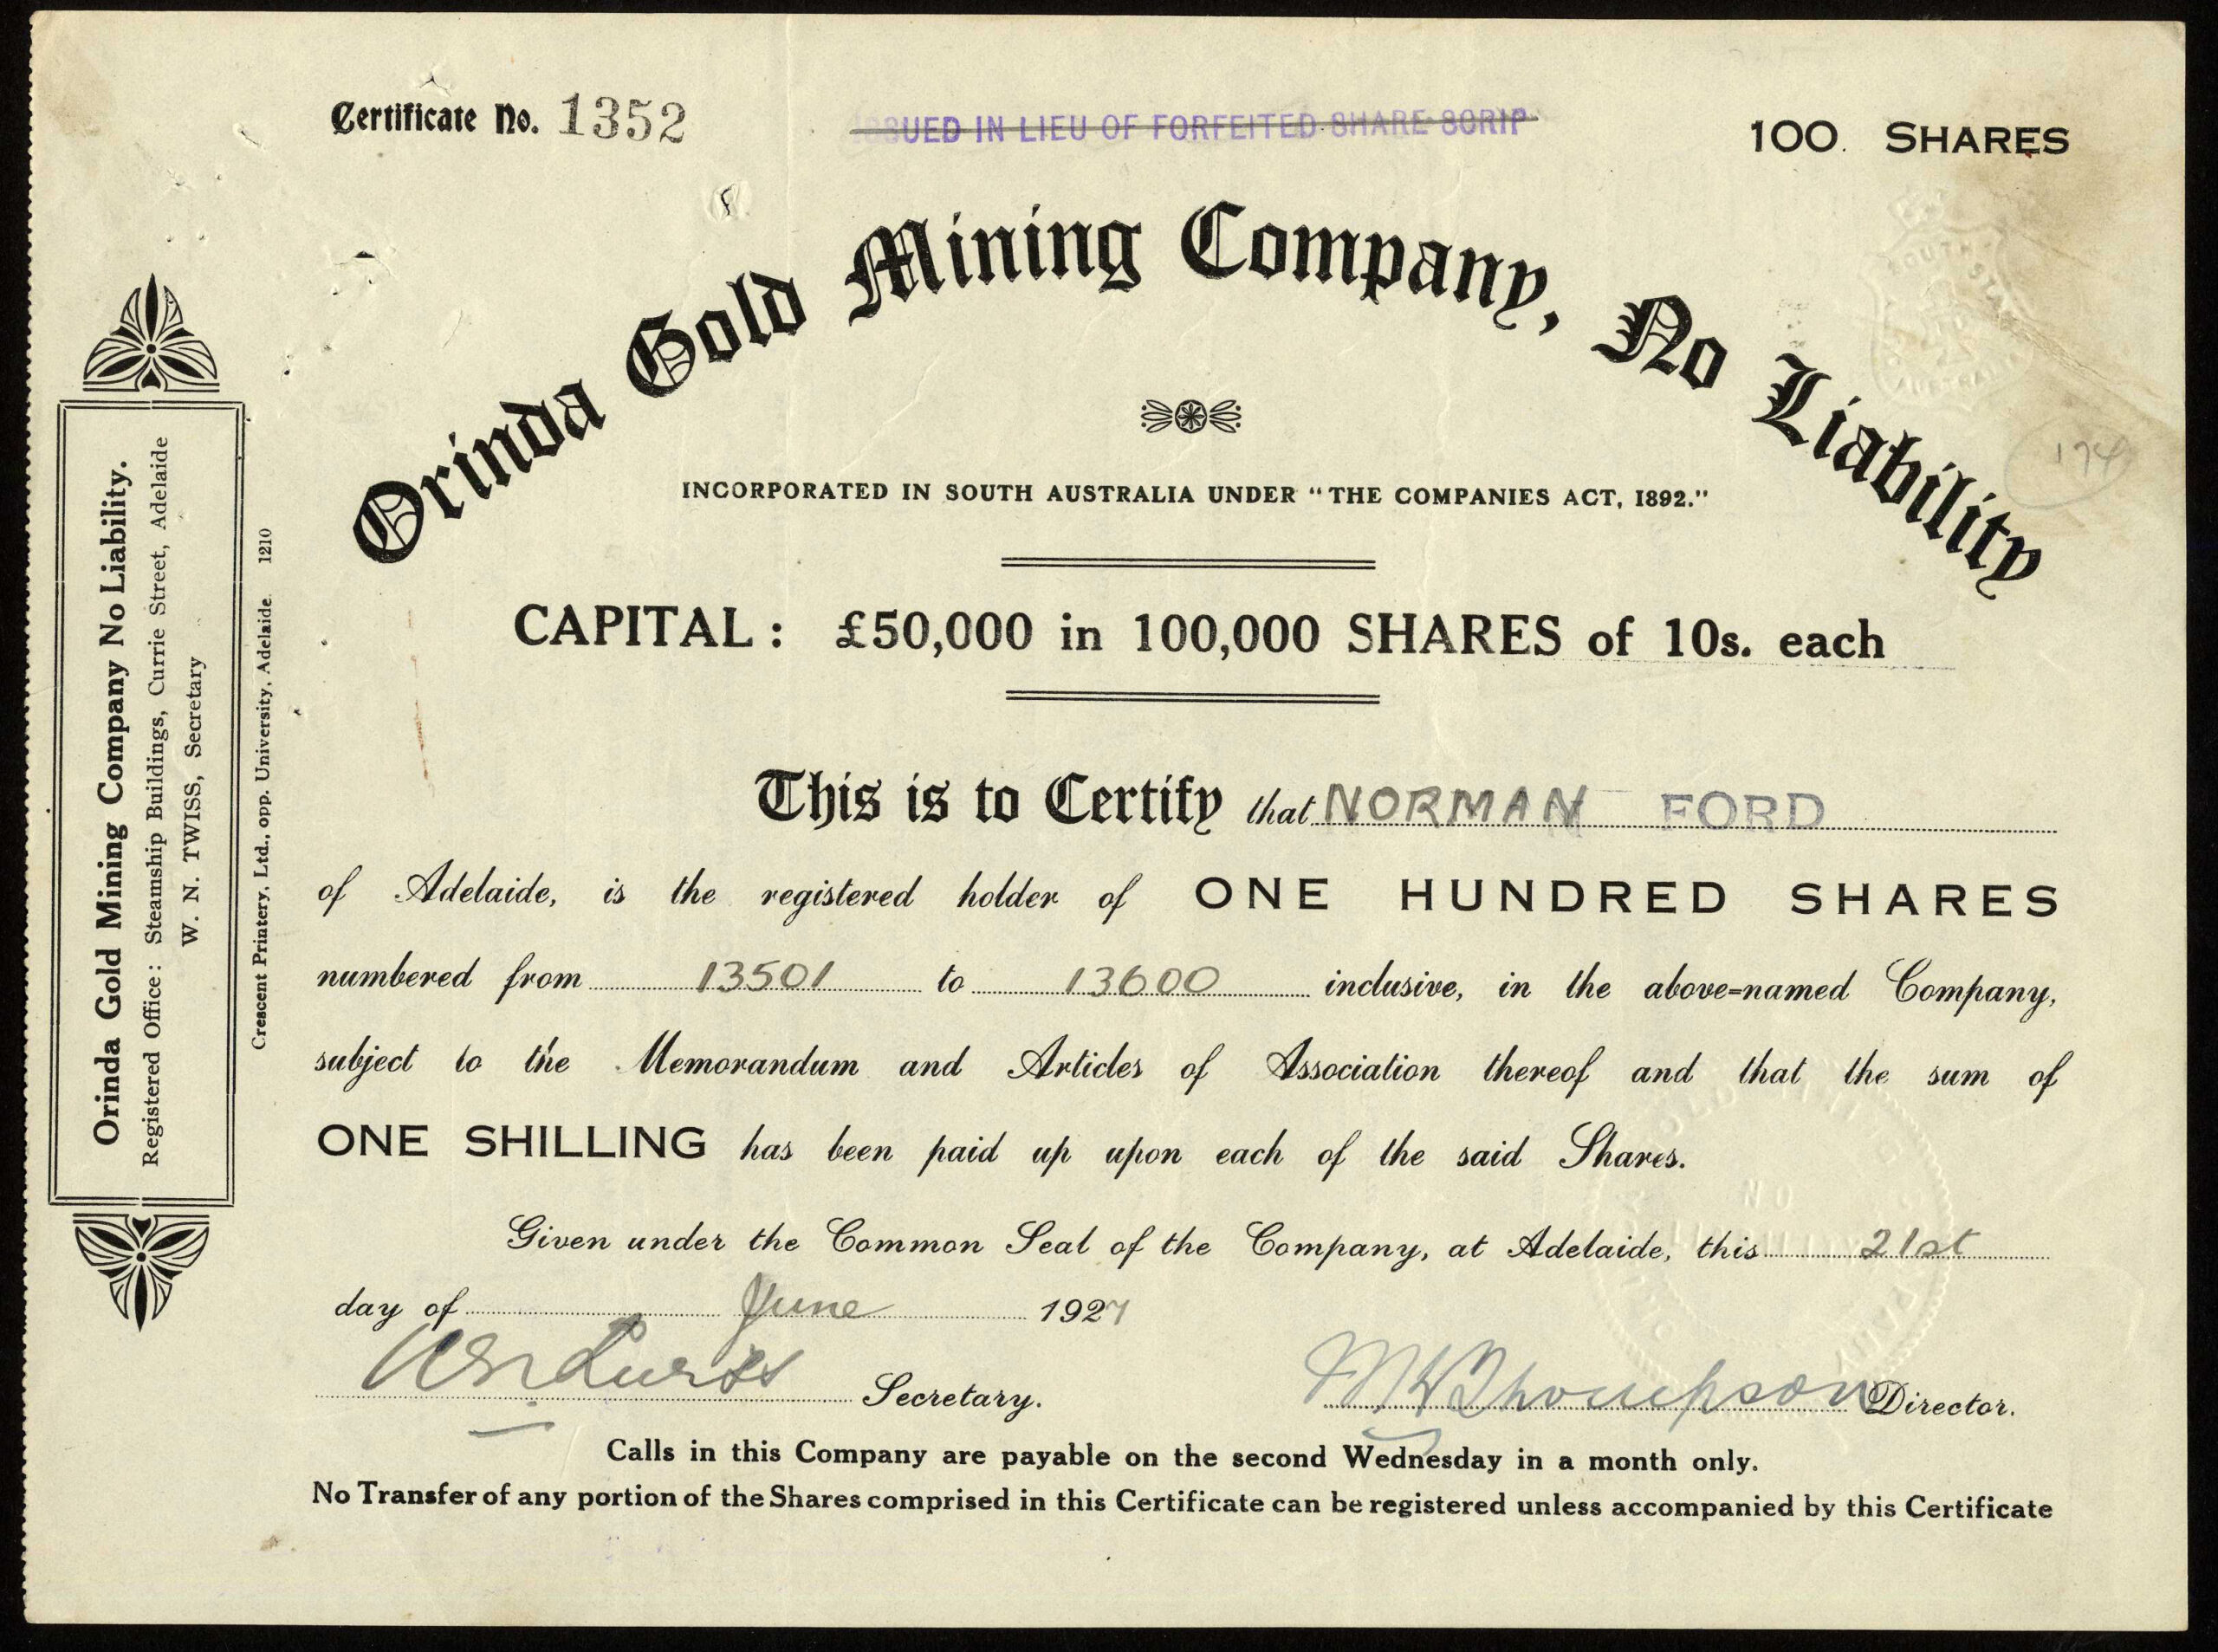 Certificate No. 1352
ISSUED IN LIEU OF FORFEITED SHARE SCRIP
100. SHARES
Orinda Gold Mining Company, No Liability
INCORPORATED IN SOUTH AUSTRALIA UNDER "THE COMPANIES ACT, 1892."
174
CAPITAL: £50,000 in 100,000 SHARES of 10s. each
This is to Certify that NORMAN FORD
of Adelaide, is the registered holder of ONE HUNDRED SHARES
numbered from 13501 to 13600 inclusive, in the above-named Company,
subject to the Memorandum and Articles of Association thereof and that the sum of
ONE SHILLING has been paid up upon each of the said Shares.
Given under the Common Seal of the Company, at Adelaide, this 21st
day of June 1927
Secretary.
M H Thompson Director.
Calls in this Company are payable on the second Wednesday in a month only.
No Transfer of any portion of the Shares comprised in this Certificate can be registered unless accompanied by this Certificate
Orinda Gold Mining Company No Liability.
Registered Office: Steamship Buildings, Currie Street, Adelaide
W. N. TWISS, Secretary
Crescent Printery, Ltd., opp. University, Adelaide 1210